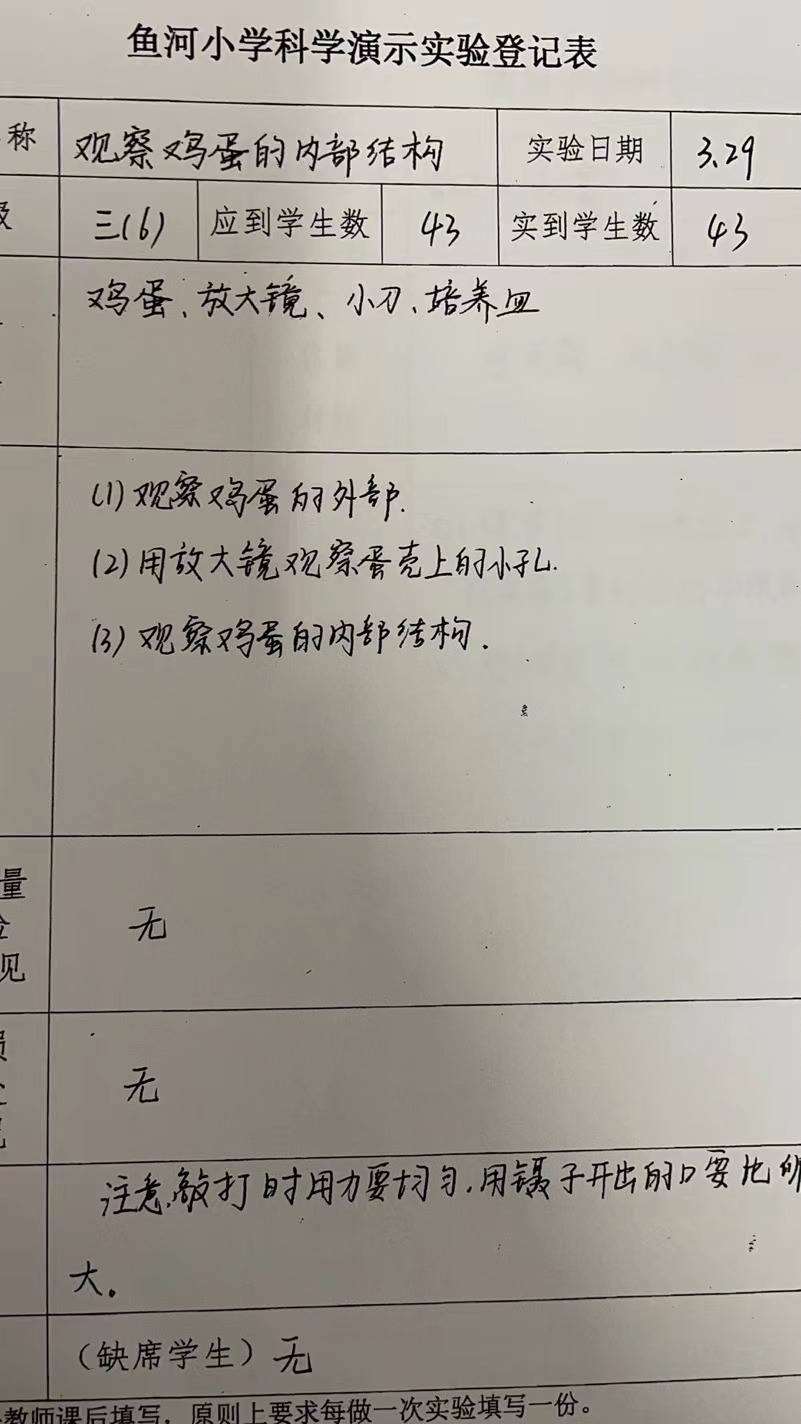 鱼河小学科学演示实验登记表
称 观察鸡蛋的内部结构 实验日期 3.29
级 三(6) 应到学生数 43 实到学生数 43
鸡蛋、放大镜、小刀、培养皿
(1)观察鸡蛋的外部.
(2)用放大镜观察蛋壳上的小孔.
(3)观察鸡蛋的内部结构.
量
见
无
无
注意,敲打时用力要均匀,用镊子开出的口要比
大。
(缺席学生)无
教师课后填写,原则上要求每做一次实验填写一份。